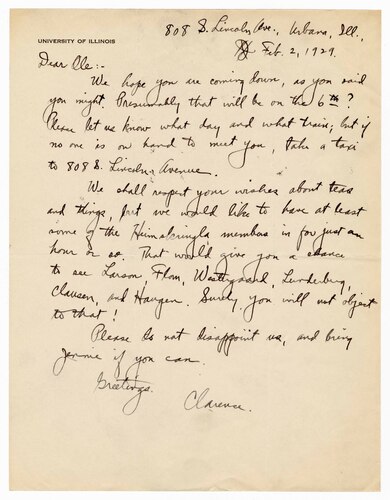 UNIVERSITY OF ILLINOIS
808 S. Lincoln Ave., Urbana, Ill.,
Feb. 2, 1929.
Dear Ole:-
We hope you are coming down, as you said
you might. Presumably that will be on the 6th?
Please let us know what day and what train; but if
no one is on hand to meet you, take a taxi
to 808 S. Lincoln Avenue.
We shall respect your wishes about teas
and things, but we would like to have at least
some of the Heimskringla members in for just an
hour or so. That would give you a chance
to see Larson, Flom, Westergaard, Lunderberg,
Clausen, and Haugen. Surely, you will not object
to that!
Please do not disappoint us, and bring
Jennie if you can.
Greetings.
Clarence.